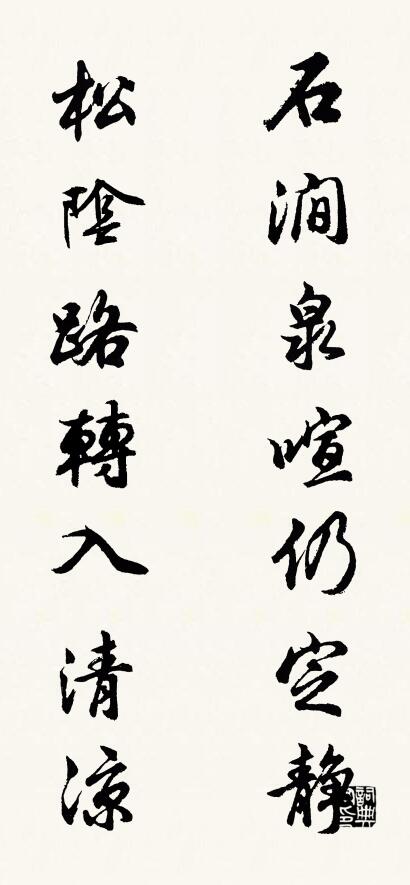 石澗泉喧仍定静
松陰路轉入清涼